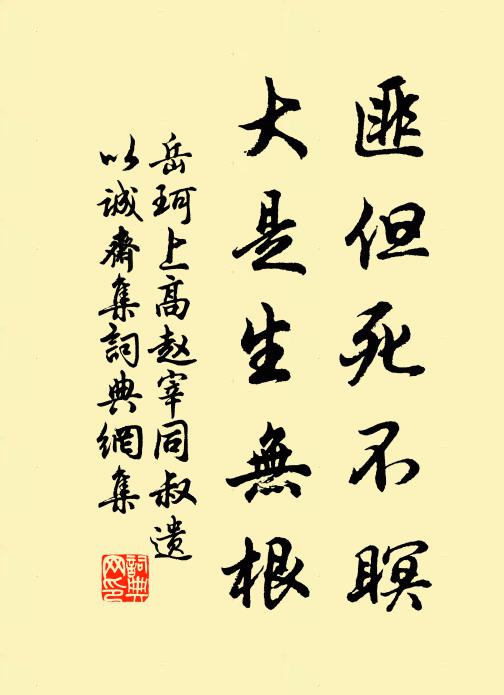 匪但死不瞑
大是生無根
岳珂上高赵宰同叔遗
以诚齋集詞典網集
詞典
网印